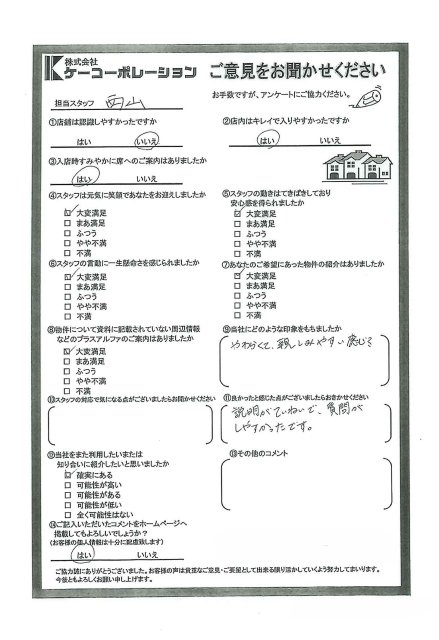 株式会社
ケーコーポレーション ご意見をお聞かせください
担当スタッフ 西山
お手数ですが、アンケートにご協力ください。
①店舗は認識しやすかったですか
はい いいえ
②店内はキレイで入りやすかったですか
はい いいえ
③入店時すみやかに席へのご案内はありましたか
はい いいえ
④スタッフは元気に笑顔であなたをお迎えしましたか
大変満足
まあ満足
ふつう
やや不満
不満
⑤スタッフの動きはてきぱきしており
安心感を得られましたか
大変満足
まあ満足
ふつう
やや不満
不満
⑥スタッフの言動に一生懸命さを感じられましたか
大変満足
まあ満足
ふつう
やや不満
不満
⑦あなたのご希望にあった物件の紹介はありましたか
大変満足
まあ満足
ふつう
やや不満
不満
⑧物件について資料に記載されていない周辺情報
などのプラスアルファのご案内はありましたか
大変満足
まあ満足
ふつう
やや不満
不満
⑨当社にどのような印象をもちましたか
やわらくて、親しみやすい感じる
⑩スタッフの対応で気になる点がございましたらお聞かせください
⑪良かったと感じた点がございましたらおきかせください
説明がていねいで、質問が
しやすかったです。
⑫当社をまた利用したいまたは
知り合いに紹介したいと思いましたか
確実にある
可能性が高い
可能性がある
可能性が低い
全く可能性はない
⑬その他のコメント
⑭ご記入いただいたコメントをホームページへ
掲載してもよろしいでしょうか？
(お客様の個人情報は十分に配慮致します)
はい いいえ
ご協力誠にありがとうございました。お客様の声は貴重なご意見・ご要望として出来る限り活かしていくよう努力してまいります。
今後ともよろしくお願い申し上げます。